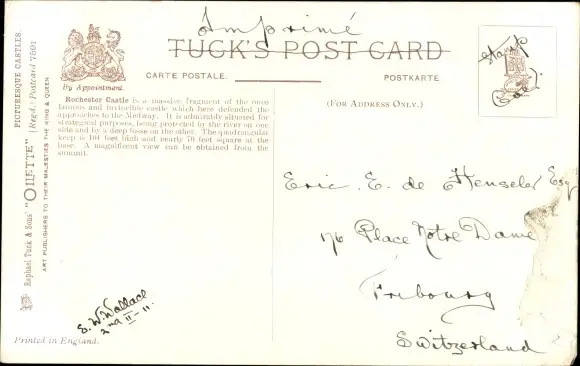 Imprimé
TUCK'S POST CARD
CARTE POSTALE.
POSTKARTE
(FOR ADDRESS ONLY.)
By Appointment.
Rochester Castle is a massive fragment of the once
famous and invincible castle which here defended the
approaches to the Medway. It is admirably situated for
strategical purposes, being protected by the river on one
side and by a deep fosse on the other. The quadrangular
keep is 104 feet high and nearly 70 feet square at the
base. A magnificent view can be obtained from the
summit.
PICTURESQUE CASTLES.
Raphael Tuck & Sons' "OILETTE" [Regd.] Postcard 7591
ART PUBLISHERS TO THEIR MAJESTIES THE KING & QUEEN
Stamp
Eric. E. de Henseler Esq
176 Place Notre Dame
Fribourg
Switzerland
E. W. Wallace
2nd II - 11.
Printed in England.